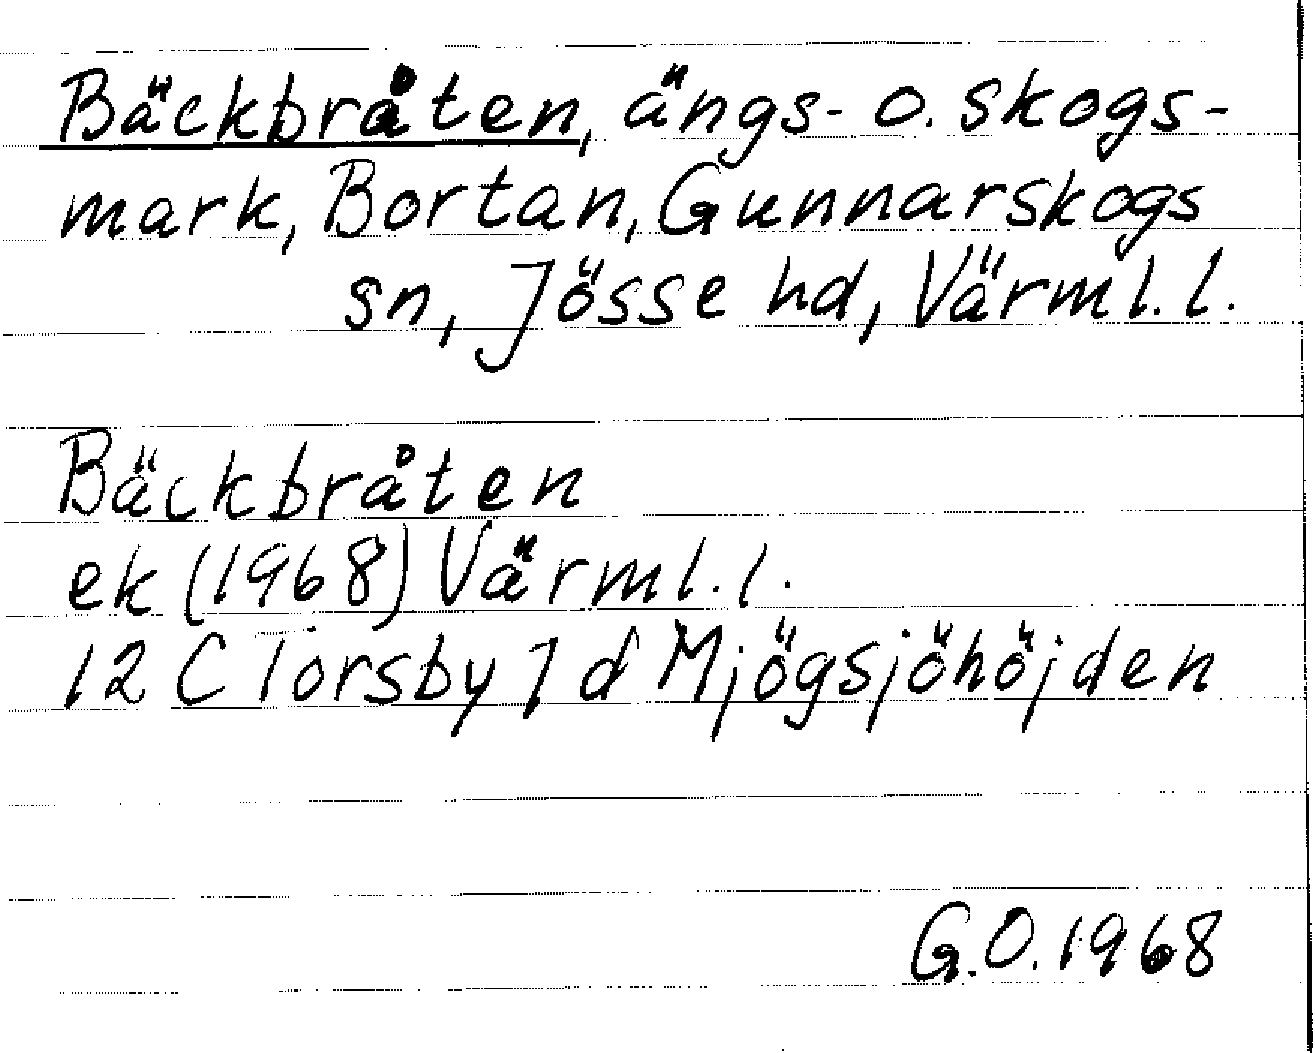 Bäckbråten, ängs- o. skogs-
mark, Bortan, Gunnarskogs
sn, Jösse hd, Värml. l.
Bäckbråten
ek (1968) Värml. l.
12 C Torsby 7 d Mjögsjöhöjden
G.O. 1968